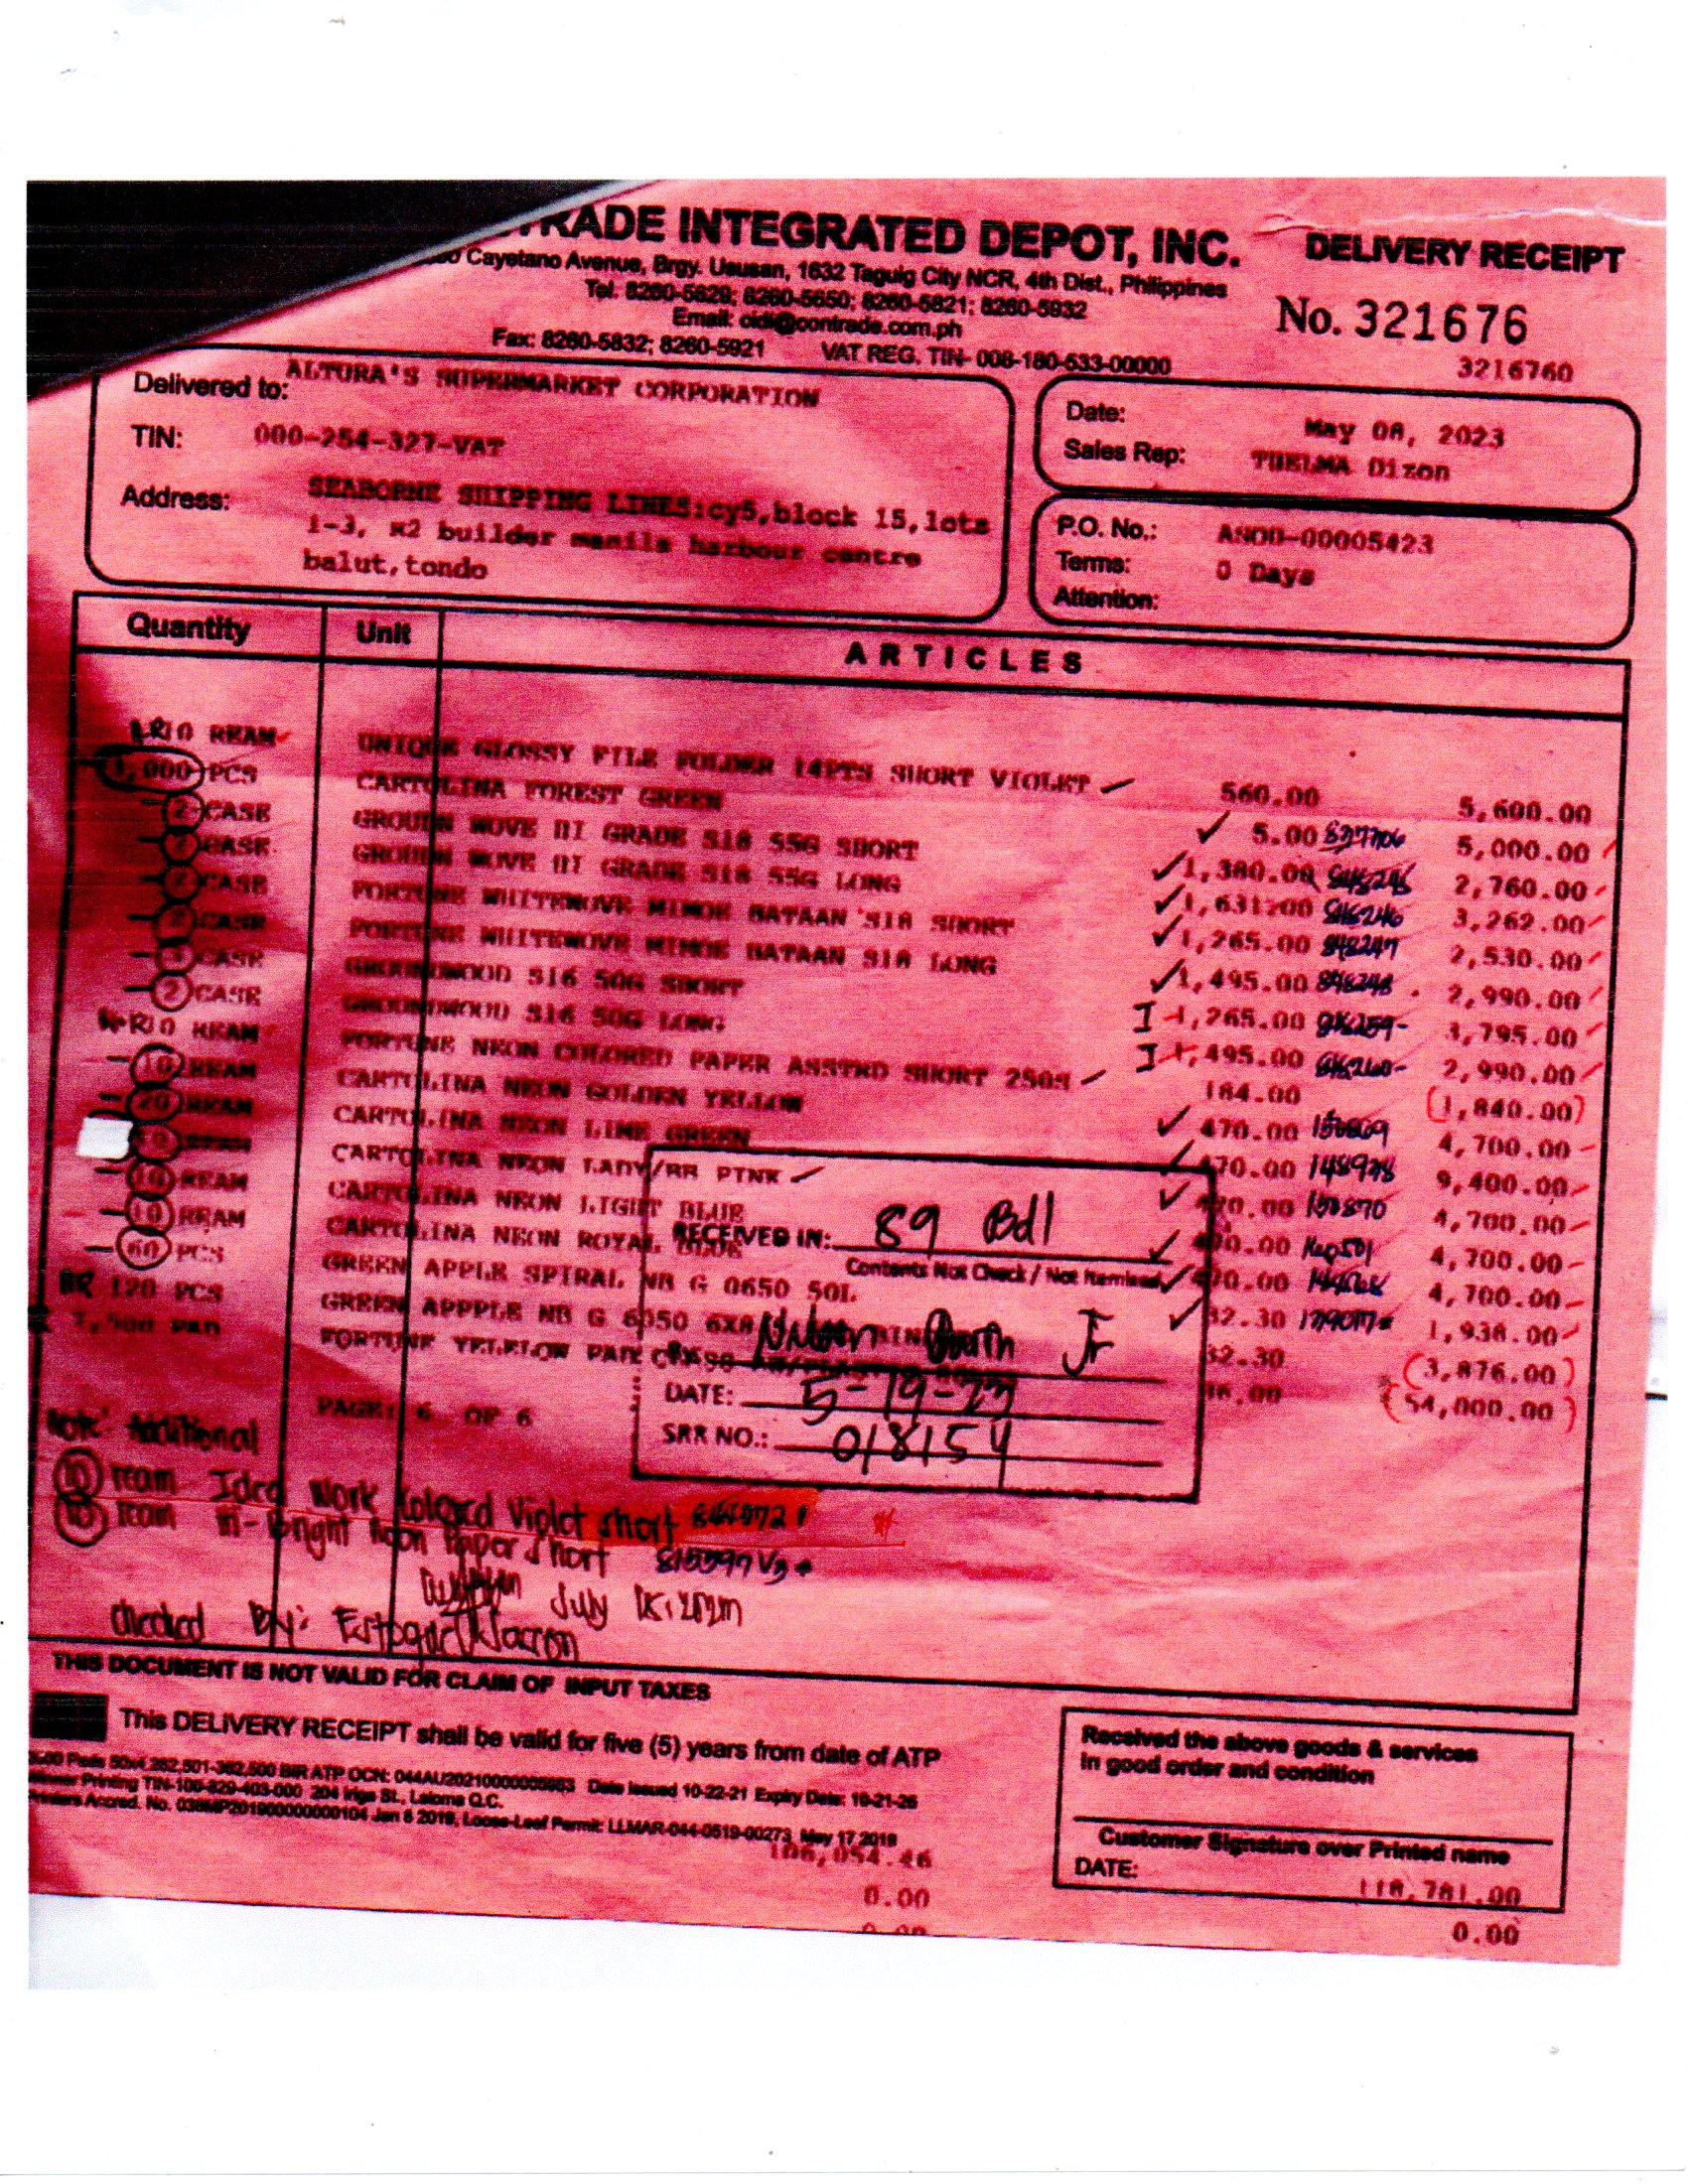 TRADE INTEGRATED DEPOT, INC.
DELIVERY RECEIPT
Cayetano Avenue, Brgy. Ususan, 1632 Taguig City NCR, 4th Dist., Philippines
Tel: 8260-5629; 8260-5650; 8260-5821; 8260-5932
Email: cidi@contrade.com.ph
Fax: 8260-5832; 8260-5921 VAT REG. TIN- 008-180-533-00000
No. 321676
3216760
Delivered to: ALTURA'S SUPERMARKET CORPORATION
TIN: 000-254-327-VAT
Address: SEABORNE SHIPPING LINES:cy5,block 15,lots
1-3, x2 builder manila harbour centre
balut,tondo
Date: May 08, 2023
Sales Rep: THELMA Dizon
P.O. No.: ASOD-00005423
Terms: 0 Days
Attention:
Quantity Unit ARTICLES
10 REAM UNIQUE GLOSSY FILE FOLDER 14PTS SHORT VIOLET 560.00 5,600.00
1,000 PCS CARTOLINA FOREST GREEN 5.00 5,000.00
2 CASE GROUDN WOVE HI GRADE S18 55G SHORT 1,380.00 2,760.00
2 CASE GROUDN WOVE HI GRADE S18 55G LONG 1,631.00 848246 3,262.00
2 CASE FORTUNE WHITEWOVE MIMOE BATAAN S18 SHORT 1,265.00 848247 2,530.00
2 CASE FORTUNE WHITEWOVE MIMOE BATAAN S18 LONG 1,495.00 848248 2,990.00
3 CASE GROUNDWOOD S16 50G SHORT 1,265.00 3,795.00
2 CASE GROUNDWOOD S16 50G LONG 1,495.00 2,990.00
10 REAM FORTUNE NEON COLORED PAPER ASSTRD SHORT 250S 184.00 (1,840.00)
10 REAM CARTOLINA NEON GOLDEN YELLOW 470.00 150869 4,700.00
20 REAM CARTOLINA NEON LIME GREEN 470.00 148938 9,400.00
10 REAM CARTOLINA NEON LADY/RR PINK 470.00 150870 4,700.00
10 REAM CARTOLINA NEON LIGHT BLUE 470.00 4,700.00
10 REAM CARTOLINA NEON ROYAL BLUE 470.00 4,700.00
60 PCS GREEN APPLE SPIRAL NB G 0650 50L 32.30 1,938.00
120 PCS GREEN APPPLE NB G 6050 6X8 32.30 (3,876.00)
PAD FORTUNE YELELOW PAD (54,000.00)
PAGE: 6 OF 6
RECEIVED IN: 89 Bdl
Contents Not Check / Not Itemized
Jr
DATE: 5-19-23
SRR NO.: 018154
Note: Additional
10 ream Work Colored Violet short
10 ream Bright Neon Paper short
July
checked By:
THIS DOCUMENT IS NOT VALID FOR CLAIM OF INPUT TAXES
This DELIVERY RECEIPT shall be valid for five (5) years from date of ATP
Pads 50x4 262,501-362,500 BIR ATP OCN: Date Issued 10-22-21 Expiry Date: 10-21-26
Printing TIN-100-829-403-000 204 Iriga St., Laloma Q.C.
Accred. No. 039MP20190000000104 Jan 6 2019, Loose-Leaf Permit: LLMAR-044-0519-00273, May 17 2019
106,054.46
0.00
0.00
Received the above goods & services
in good order and condition
Customer Signature over Printed name
DATE:
118,781.00
0.00